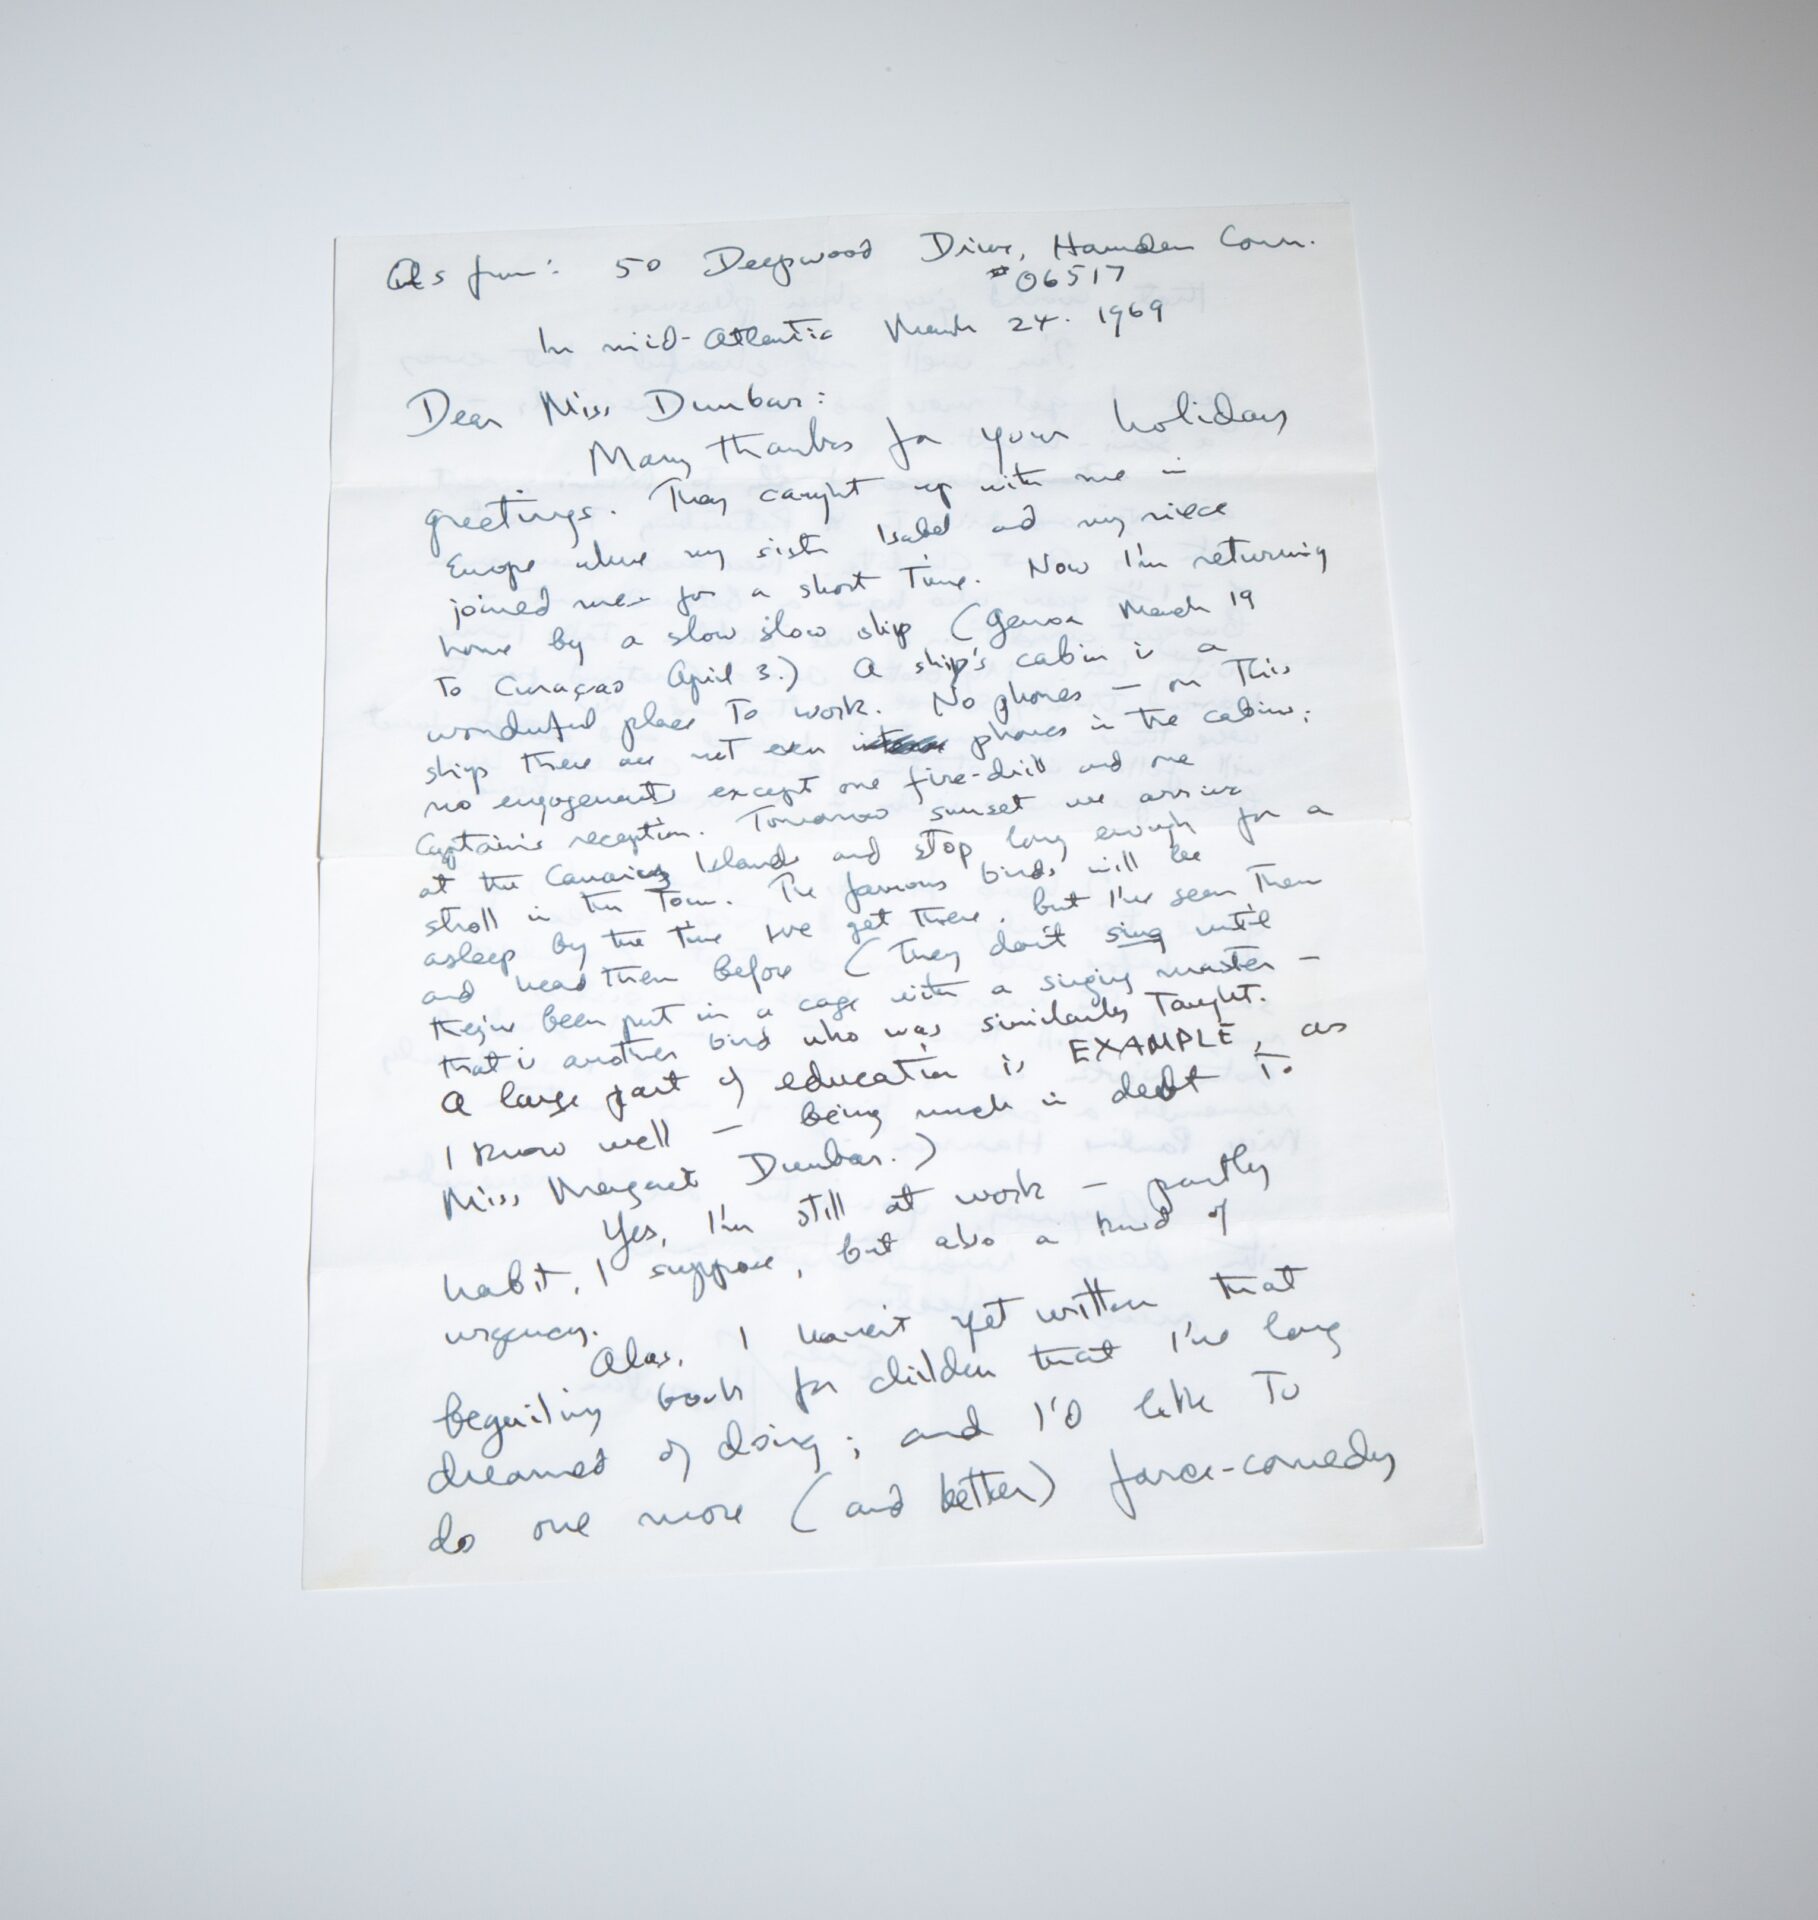 As from: 50 Deepwood Drive, Hamden Conn.
#06517
In mid-Atlantic March 24. 1969
Dear Miss Dunbar:
Many thanks for your holidays
greetings. They caught up with me in
Europe where my sister Isabel and my niece
joined me for a short time. Now I'm returning
home by a slow slow ship (Genoa March 19
to Curaçao April 3.) A ship's cabin is a
wonderful place to work. No phones — on this
ship there are not even phones in the cabins;
no engagements except one fire-drill and one
Captain's reception. Tomorrow sunset we arrive
at the Canaries Islands and stop long enough for a
stroll in the town. The famous birds will be
asleep by the time we get there, but I've seen them
and heard them before (they don't sing until
they've been put in a cage with a singing master —
that is another bird who was similarly taught.
A large part of education is EXAMPLE, as
I know well — being much in debt to
Miss Margaret Dunbar.)
Yes, I'm still at work — partly
habit, I suppose, but also a kind of
urgency.
Alas, I haven't yet written that
beguiling book for children that I've long
dreamed of doing; and I'd like to
do one more (and better) farce-comedy